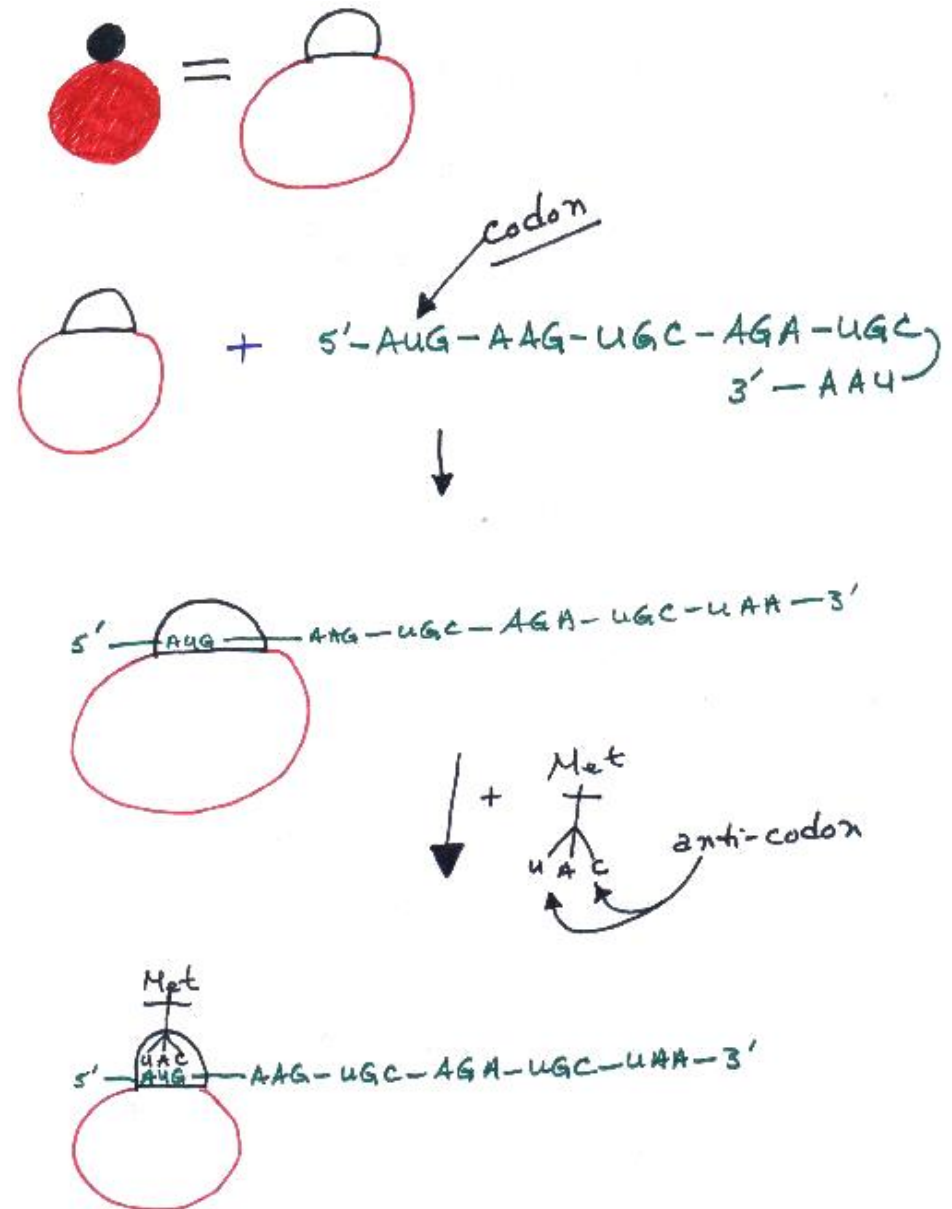 =
codon
+ 5′-AUG-AAG-UGC-AGA-UGC
3′-AAU
5′-AUG-AAG-UGC-AGA-UGC-UAA-3′
+ Met
anti-codon
U A C
Met
UAC
5′-AUG-AAG-UGC-AGA-UGC-UAA-3′